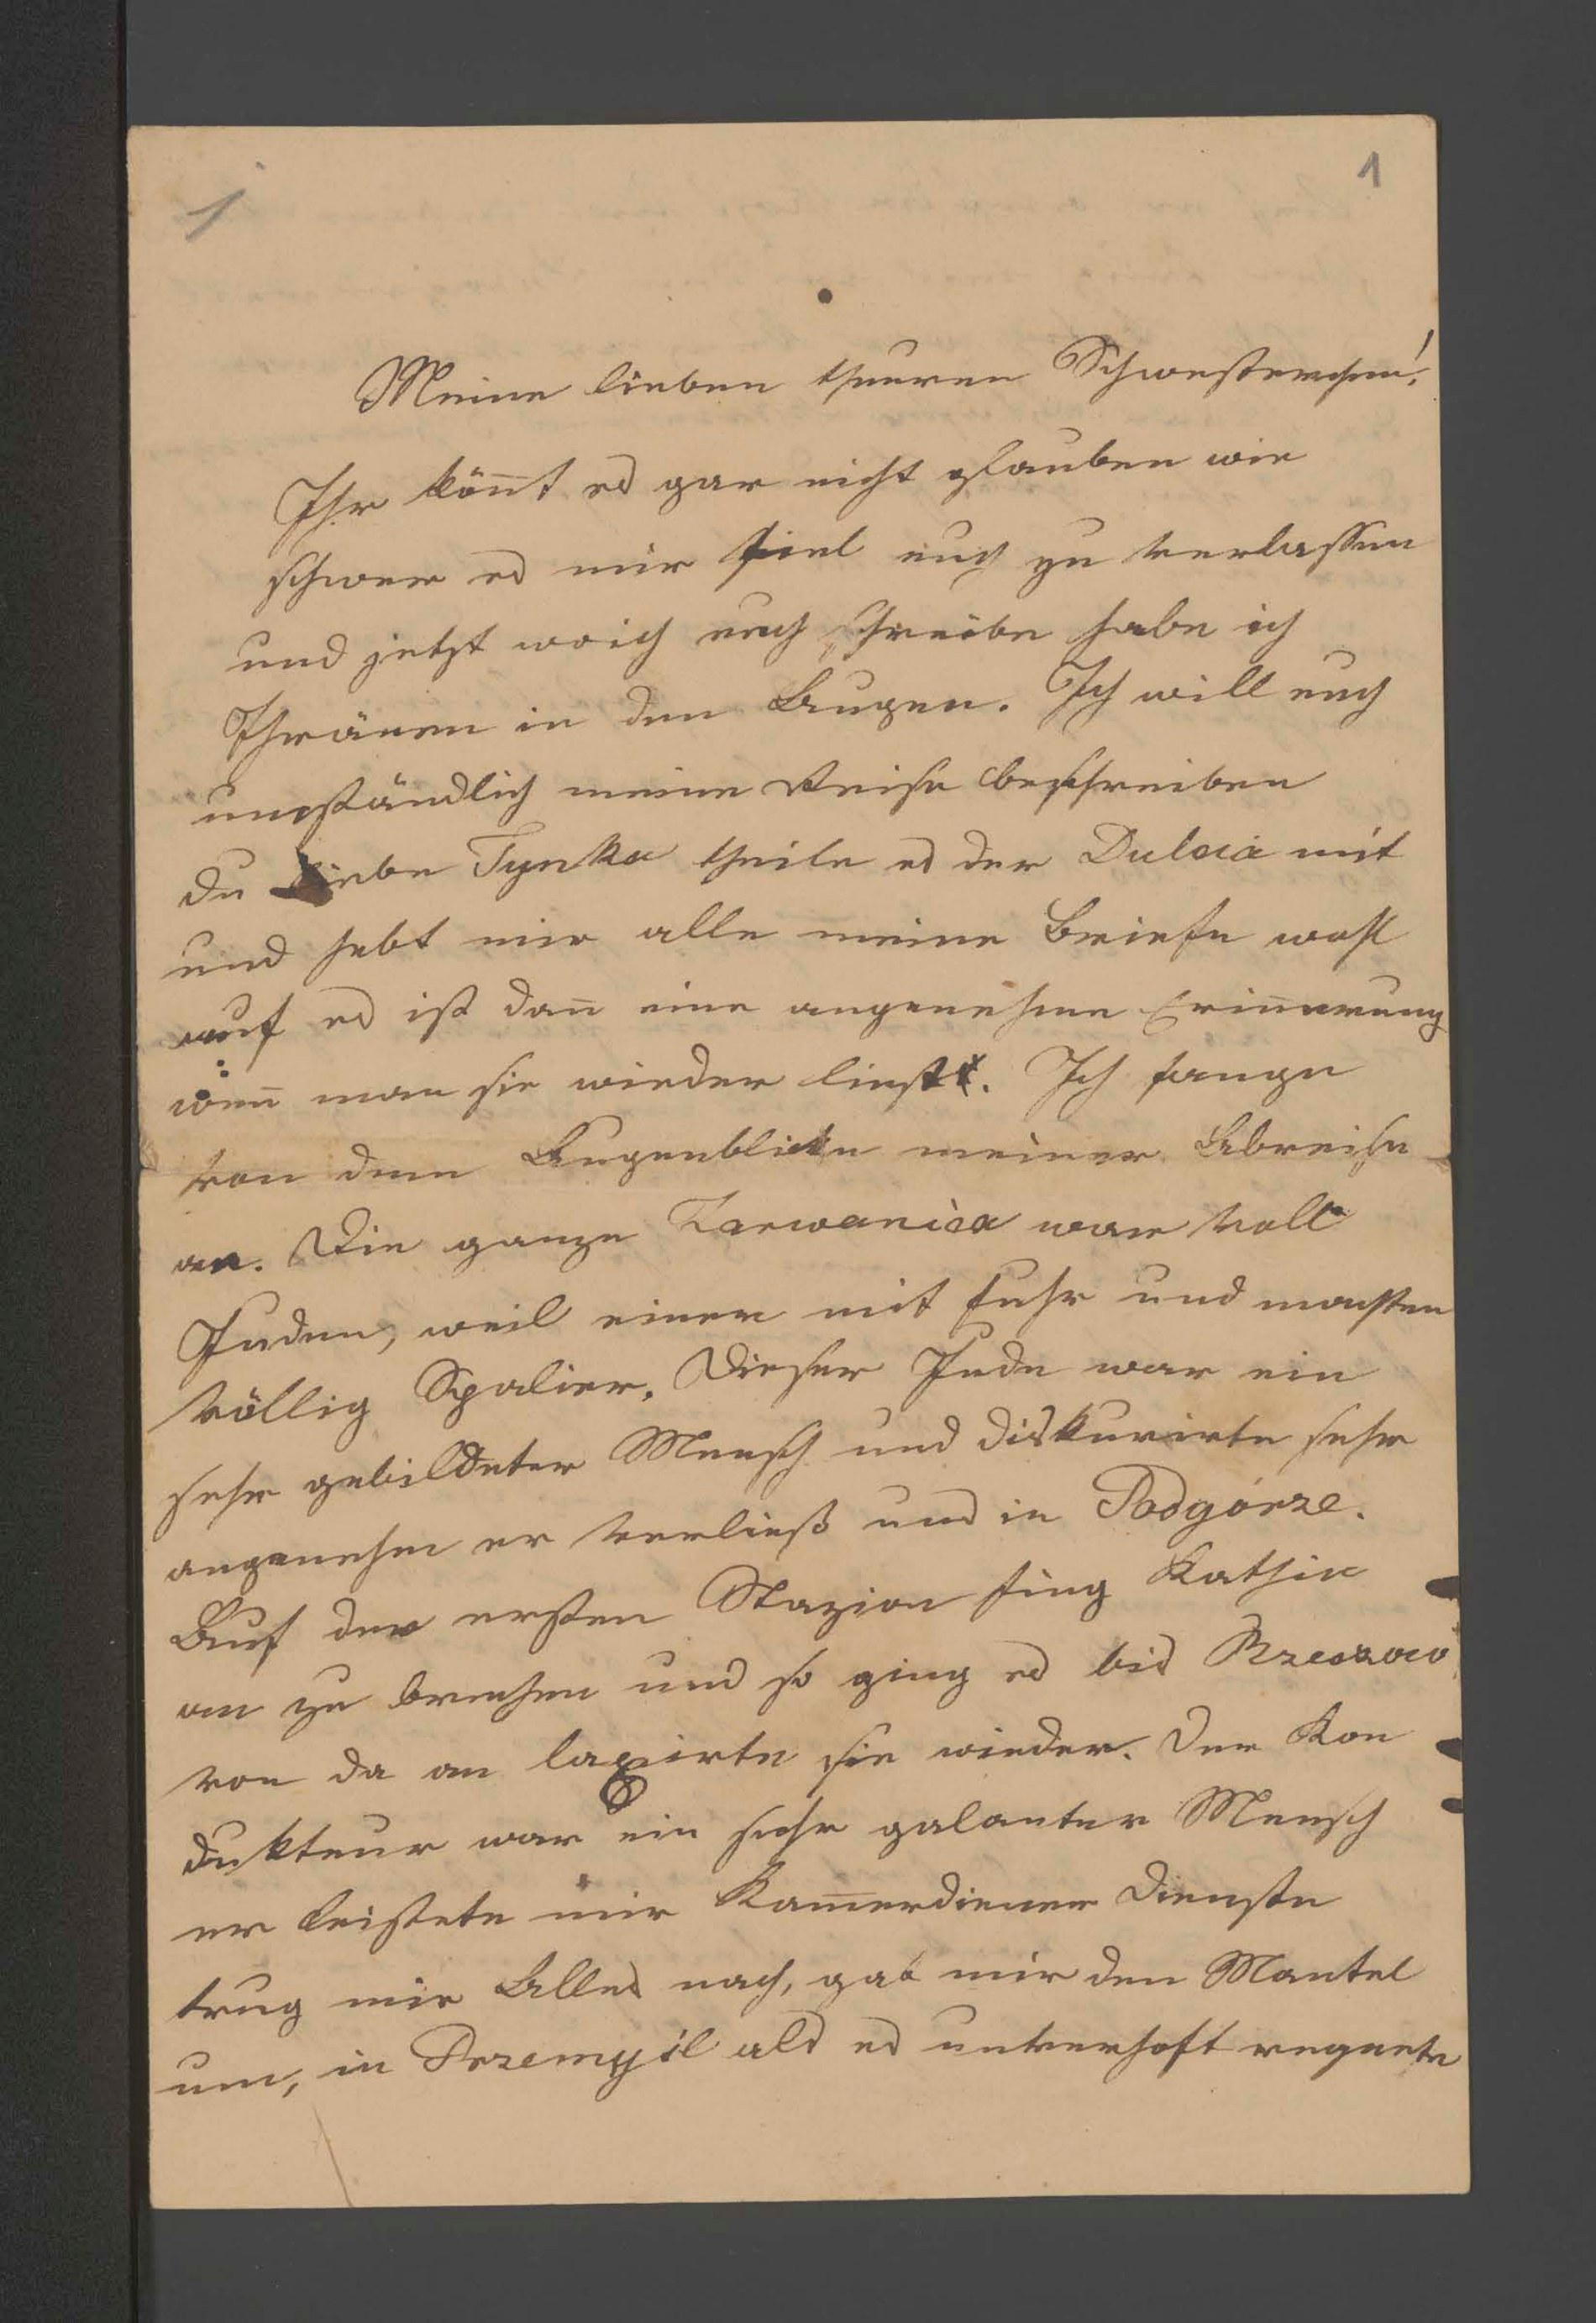 1
1
Meine lieben theuren Schwesterchen!
Ihr kön̄t es gar nicht glauben wie
schwer es mir fiel euch zu verlassen
und jetzt wo ich euch schreibe habe ich
Thränen in den Augen. Ich will euch
umständlich meine Reise beschreiben
du liebe Tynka theile es der Dulcia mit
und hebt mir alle meine Briefe wohl
auf es ist dan̄ eine angenehme Erin̄erung
wen̄ man sie wieder liest. Ich fange
von dem Augenblicke meiner Abreise
an. Die ganze war voll
Juden, weil einer mit fuhr und machten
völlig Spalier. Dieser Jude war ein
sehr gebildeter Mensch und diskurirte sehr
angenehm er verließ uns in Podgórze.
Auf der ersten Stazion fing Kathi
an zu brechen und so ging es bis Rzeszow
von da an laxirte sie wieder. Der Kon
dukteur war ein sehr galanter Mensch
er leistete mir Kam̄erdiener Dienste
trug mir Alles nach, gab mir den Mantel
um, in Przemyśl als es regnete